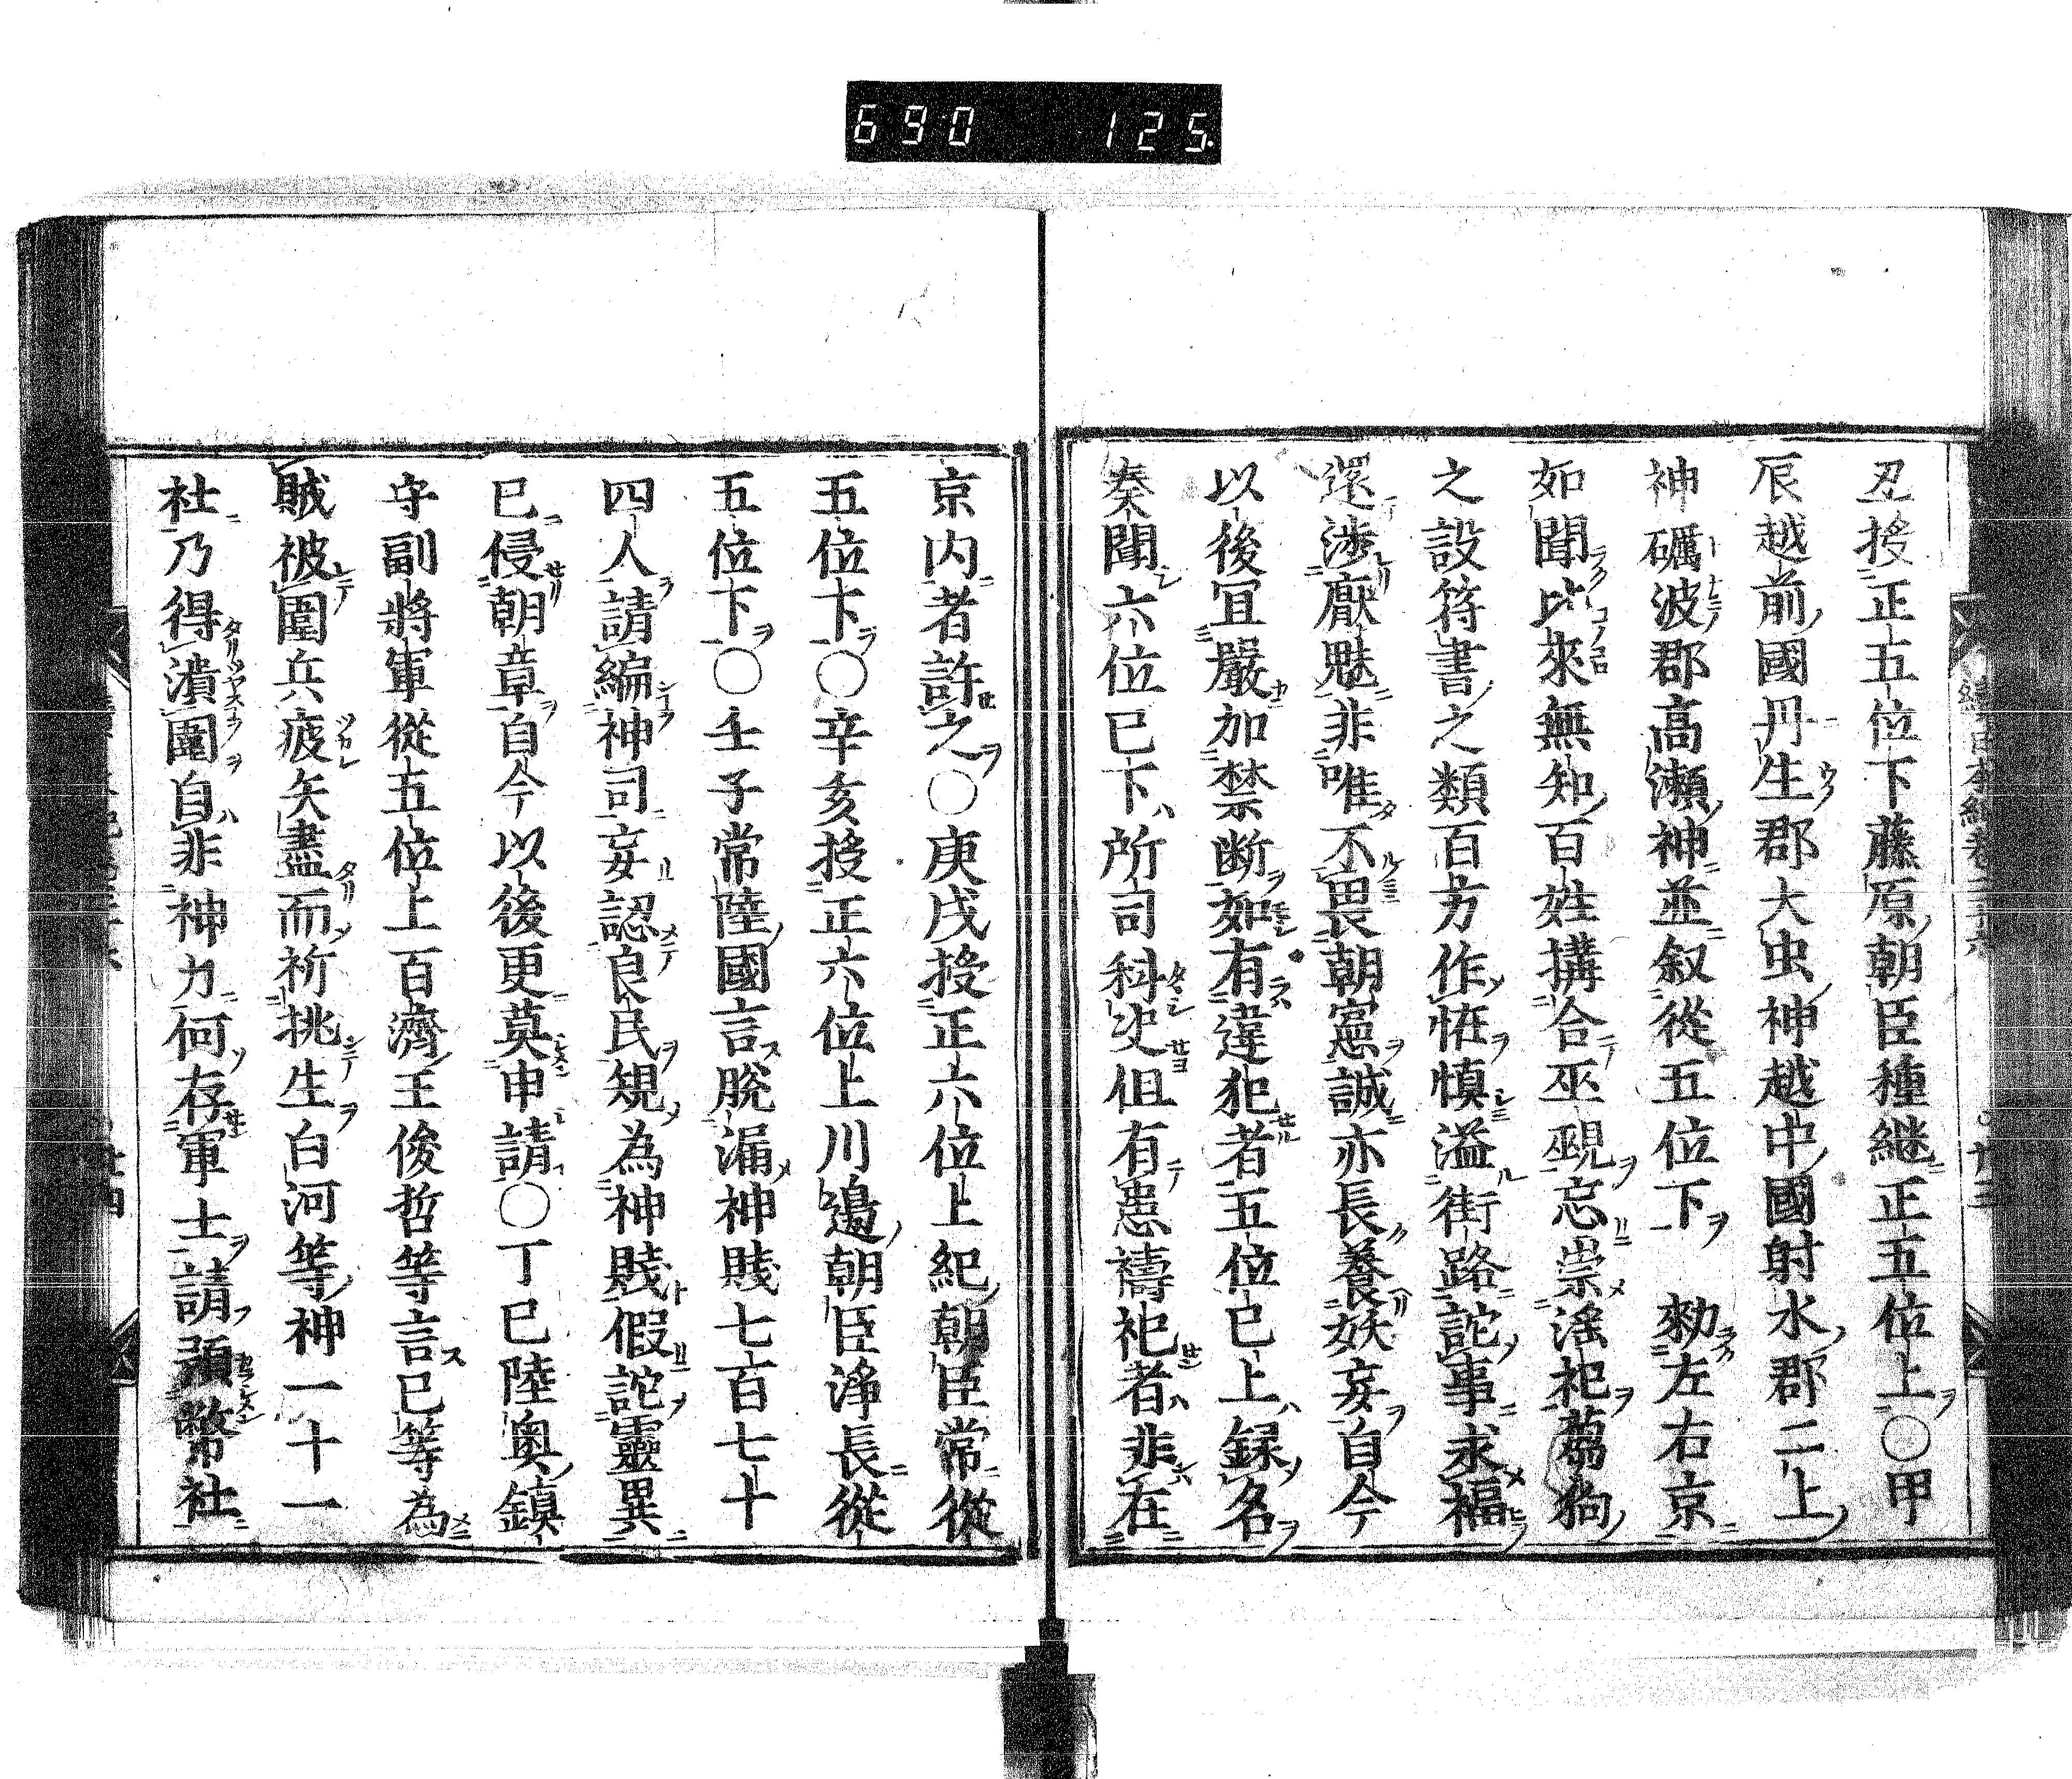 690 125
忍授正五位下藤原朝臣種継正五位上○甲
辰越前國丹生郡大虫神越中國射水郡二上
神礪波郡高瀬神並叙從五位下 勅左右京
如聞比來無知百姓搆合巫覡忘崇滛祀蒭狗
之設符書之類百方作恠慎溢街路詫事求福
還渉厭魅非唯不畏朝憲誠亦長養妖妄自今
以後冝嚴加禁断如有違犯者五位已上録名
奏聞六位已下所司科决但有患禱祀者非在
京内者許之○庚戌授正六位上紀朝臣常從
五位下○辛亥授正六位上川邉朝臣浄長從
五位下○壬子常陸國言脱漏神賤七百七十
四人請編神司妄認良民規為神賤假詫靈異
已侵朝章自今以後更莫申請○丁巳陸奥鎮
守副將軍從五位上百濟王俊哲等言己等為
賊被圍兵疲矢盡而祈桃生白河等神一十一
社乃得潰圍自非神力何存軍士請預幣社